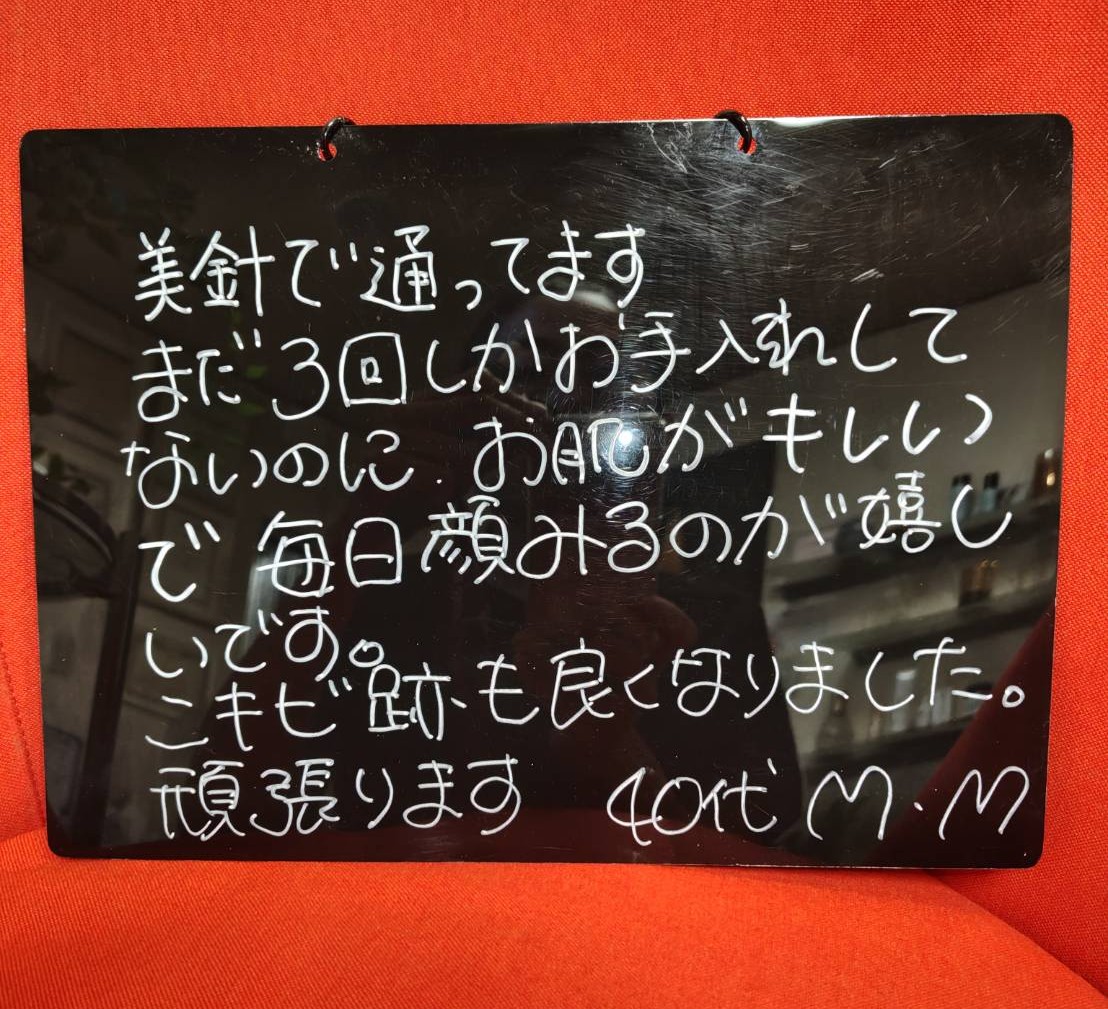 美針で通ってます
まだ3回しかお手入れして
ないのに、お肌がキレイ
で毎日顔みるのが嬉し
いです。
ニキビ跡も良くなりました。
頑張ります 40代 M.M